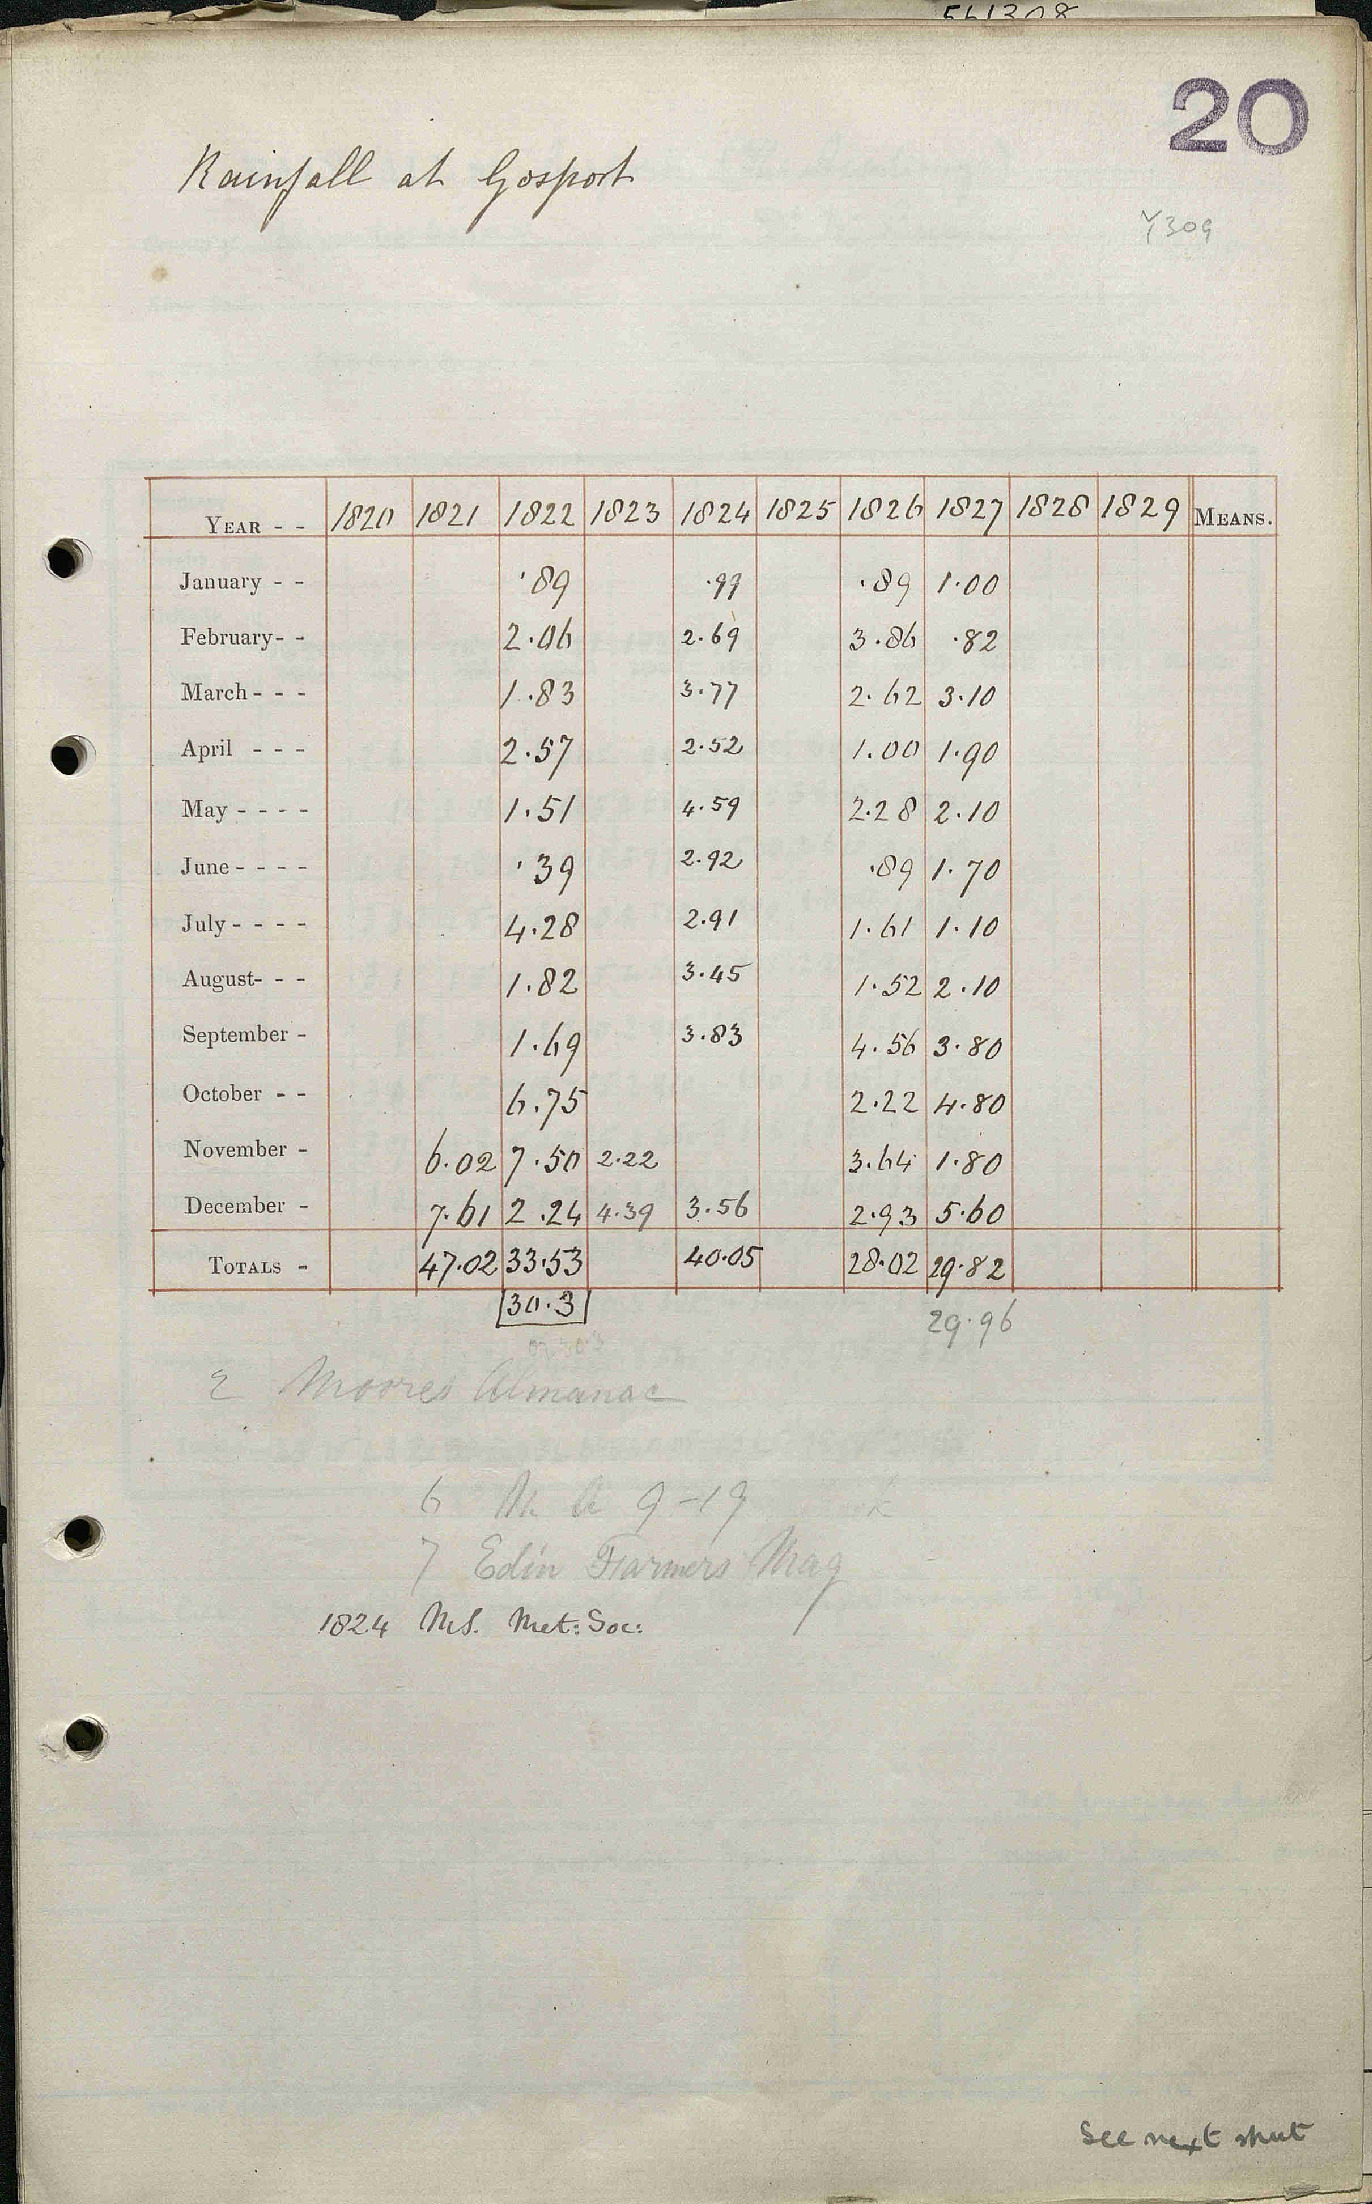 20
Rainfall at Gosport
Y309
YEAR - - 1820 1821 1822 1823 1824 1825 1826 1827 1828 1829 MEANS.
January - - ·89 ·99 ·89 1·00
February - - 2·06 2·69 3·86 ·82
March - - - 1·83 3·77 2·62 3·10
April - - - 2·57 2·52 1·00 1·90
May - - - - 1·51 4·59 2·28 2·10
June - - - - ·39 2·92 ·89 1·70
July - - - - 4·28 2·91 1·61 1·10
August - - - 1·82 3·45 1·52 2·10
September - 1·69 3·83 4·56 3·80
October - - 6·75 2·22 4·80
November - 6·02 7·50 2·22 3·64 1·80
December - 7·61 2·24 4·39 3·56 2·93 5·60
TOTALS - 47·02 33·53 40·05 28·02 29·82
30·3 29·96
2 Moores Almanac
6 9-19
7 Edin Farmers Mag
1824 MS. Met: Soc:
See next sheet